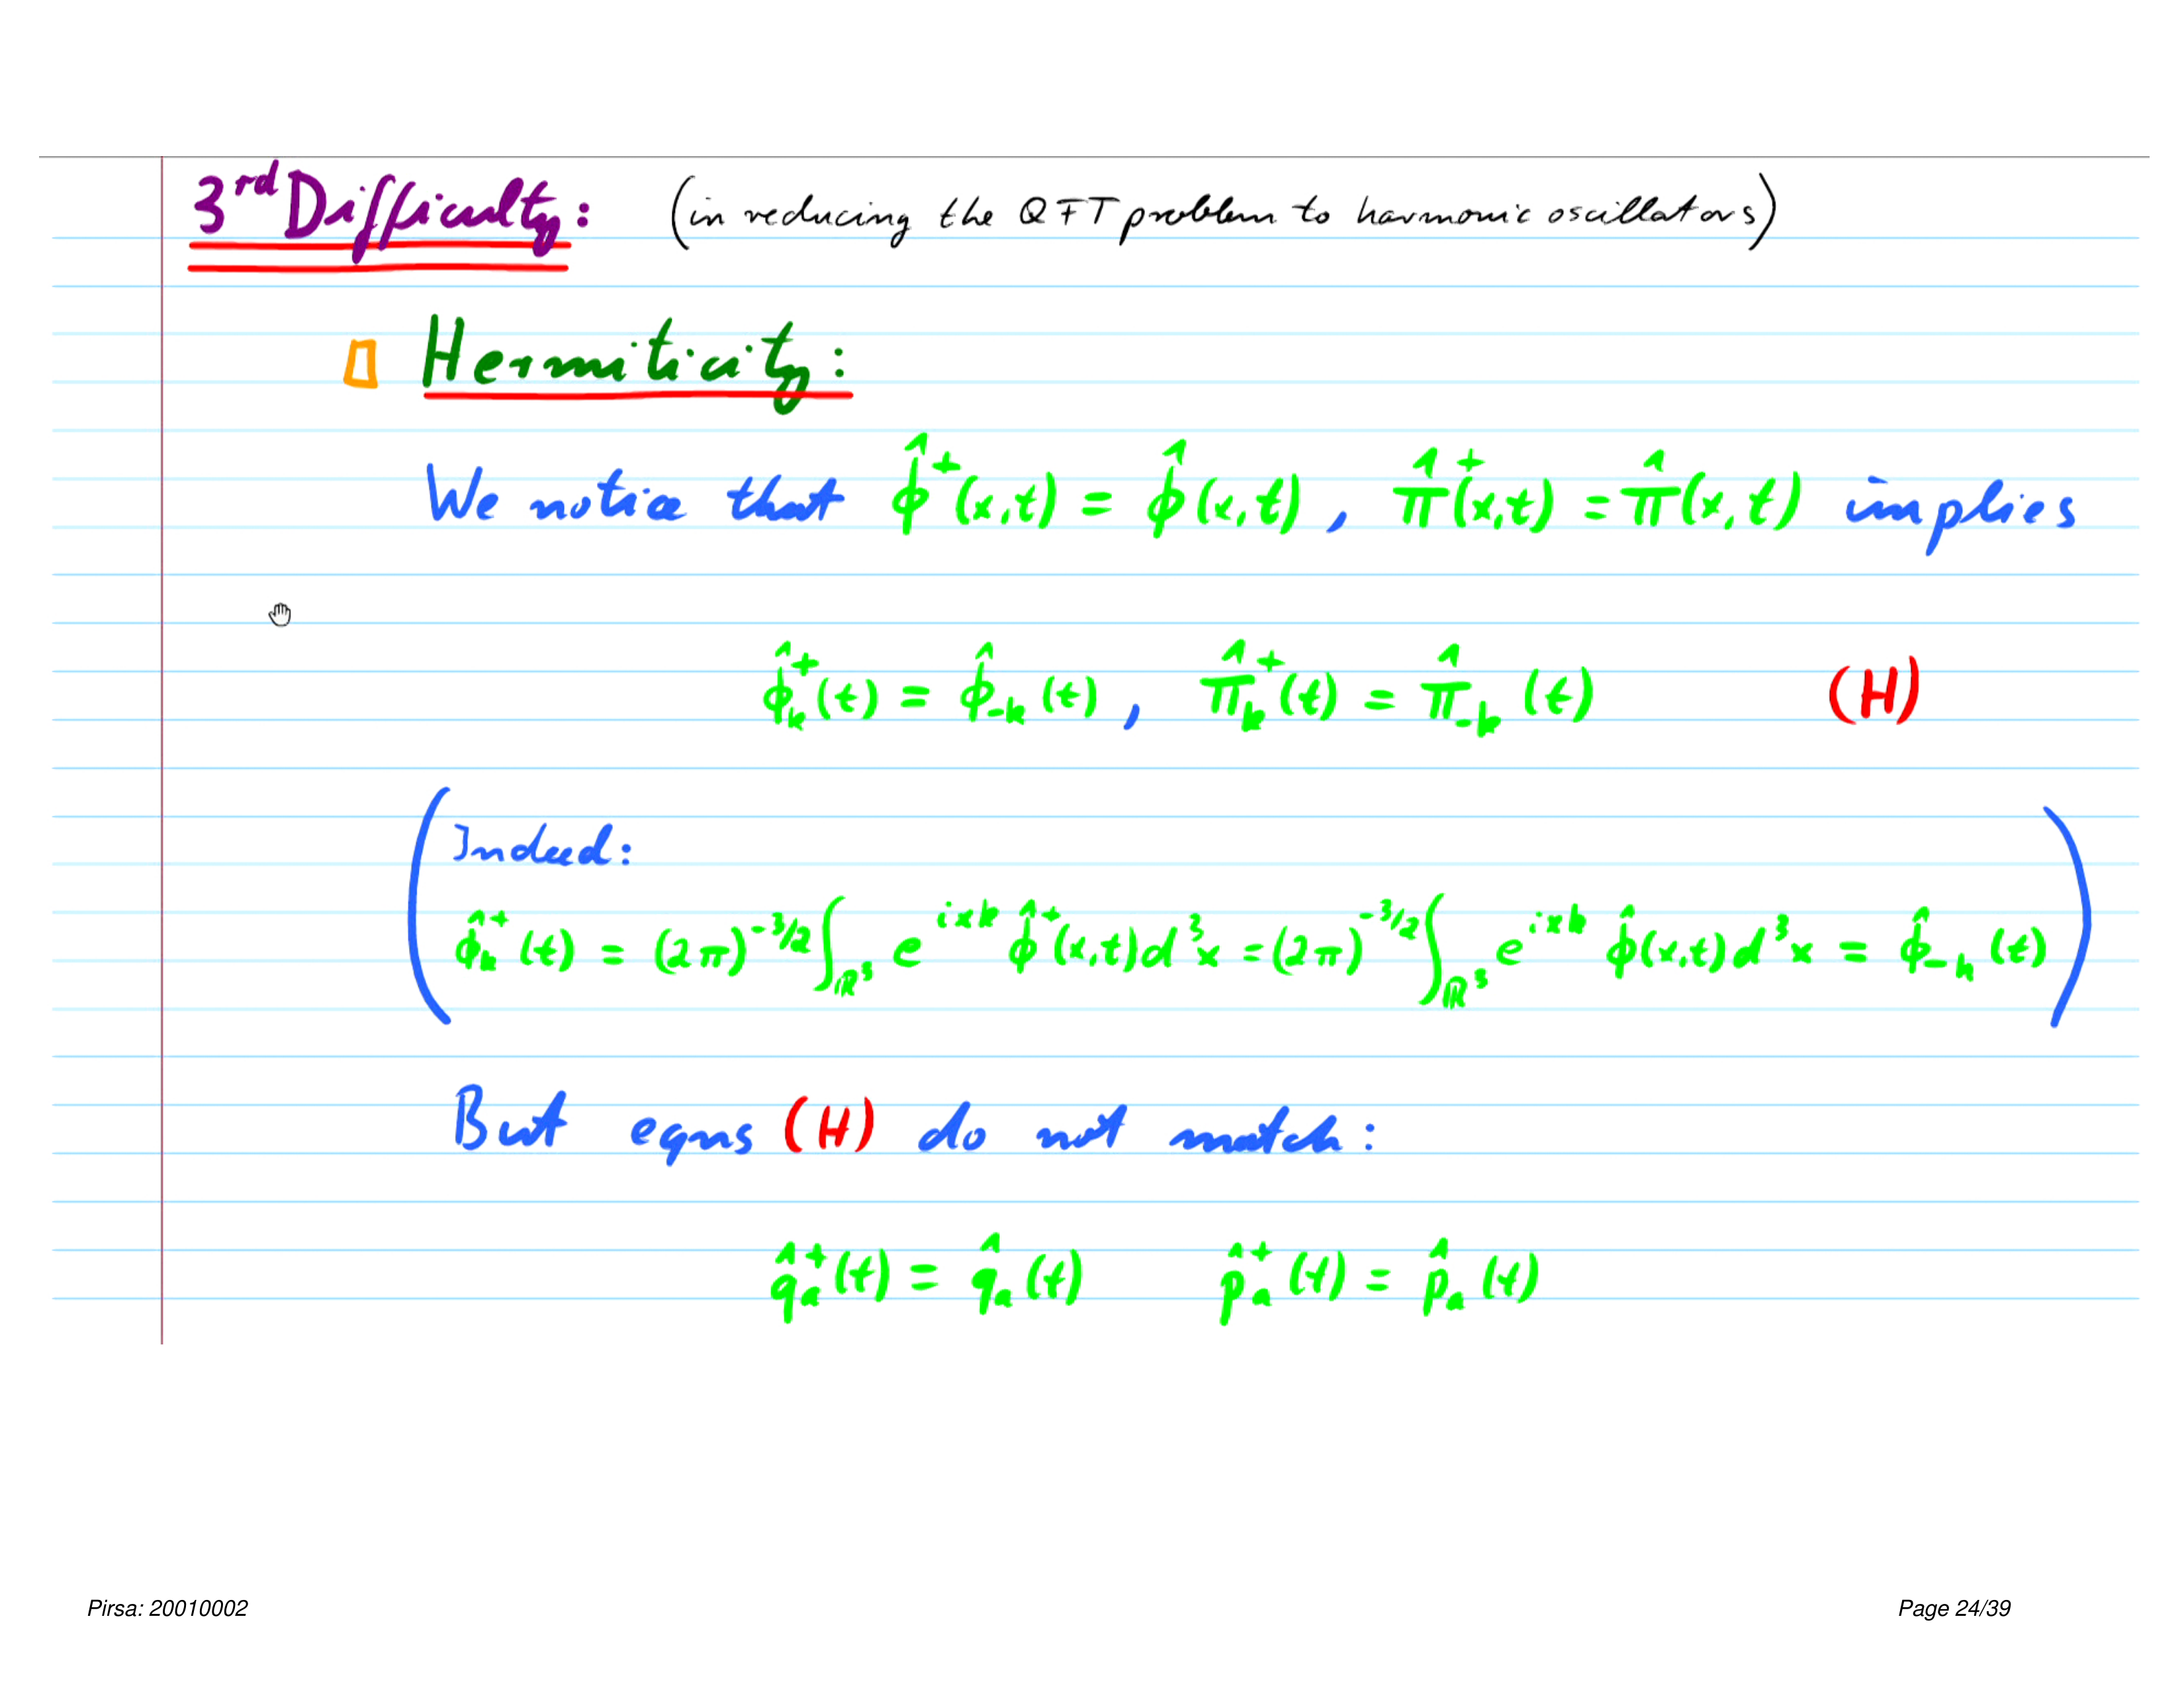 3rd Difficulty: (in reducing the QFT problem to harmonic oscillators)
Hermiticity:
We notice that φ̂⁺(x,t) = φ̂(x,t), π̂⁺(x,t) = π̂(x,t) implies
φ̂ₖ⁺(t) = φ̂₋ₖ(t), π̂ₖ⁺(t) = π̂₋ₖ(t) (H)
Indeed:
φ̂ₖ⁺(t) = (2π)^{-3/2} ∫_{ℝ³} e^{ixk} φ̂⁺(x,t) d³x = (2π)^{-3/2} ∫_{ℝ³} e^{ixk} φ̂(x,t) d³x = φ̂₋ₖ(t)
But eqns (H) do not match:
q̂ₐ⁺(t) = q̂ₐ(t) p̂ₐ⁺(t) = p̂ₐ(t)
Pirsa: 20010002 Page 24/39